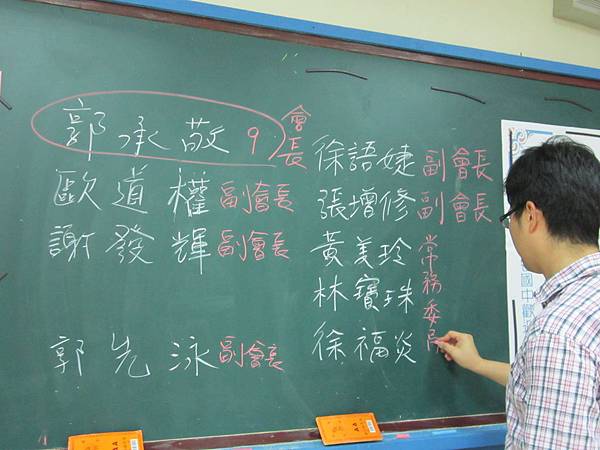 郭承敬 9 會長
歐道權 副會長
謝發輝 副會長
郭先泳 副會長
徐語婕 副會長
張增修 副會長
黃美玲
林寶珠
徐福炎
常務委
國中歡